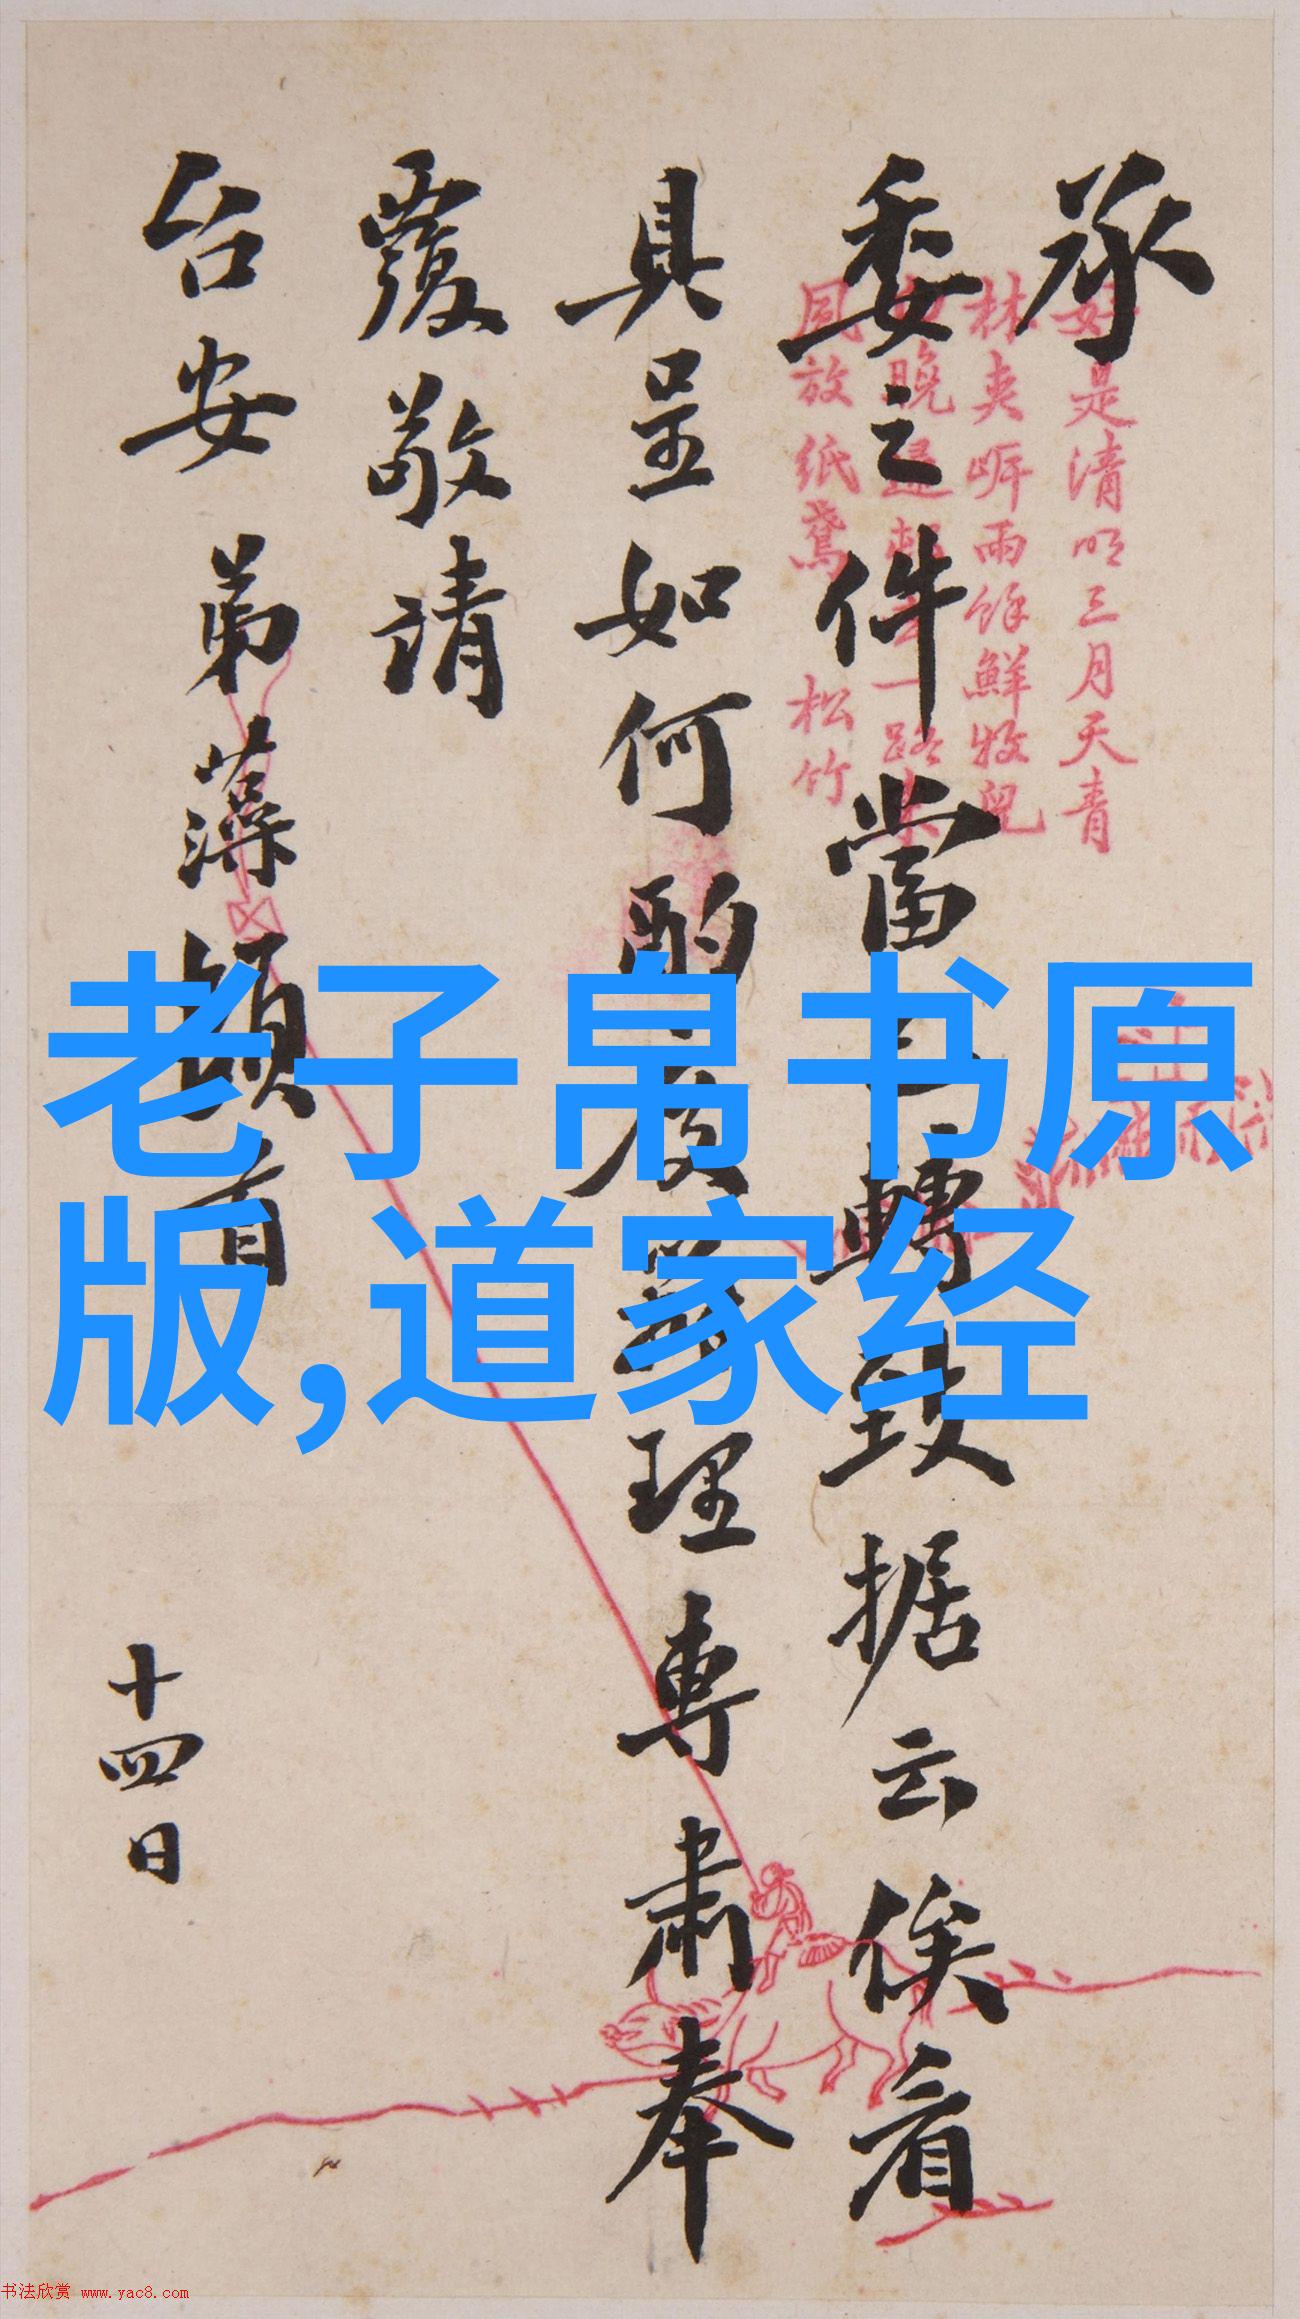 承
委之件當轉致据云俟看
具呈如何酌理專肅奉
覆敬請
台安 弟藻頓首
十四日
好是清明三月天青
林夾岍雨餘鮮牧兒
晚一路
放紙鳶 松竹
老子帛书原
版,道家经
书法欣赏 www.yac8.com